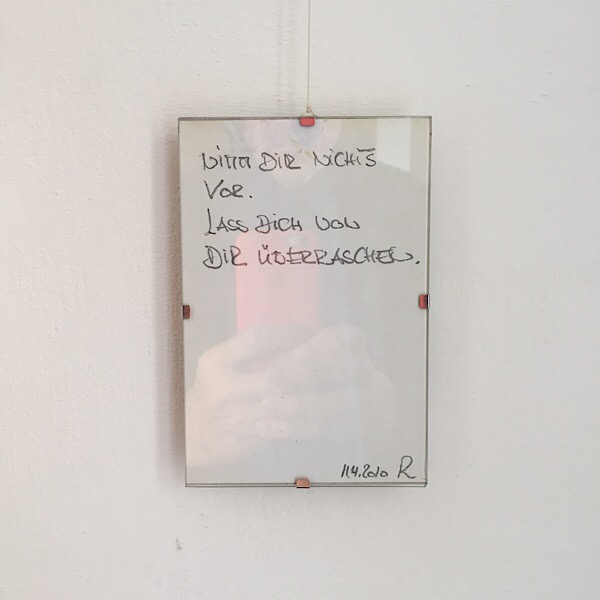 NIMM DIR NICHTS
VOR.
LASS DICH VON
DIR ÜBERRASCHEN.
11.4.2010 R